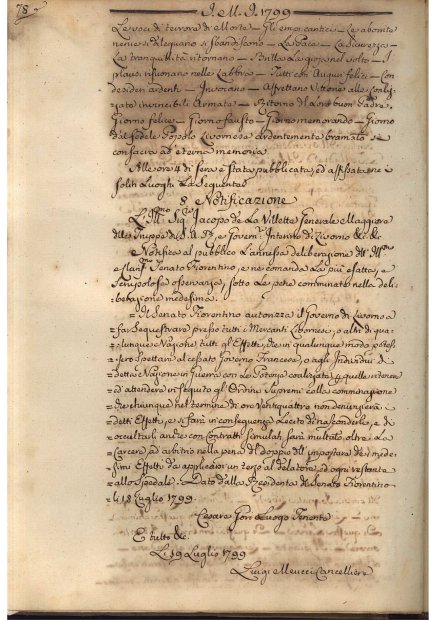 78
J. M. J. 1799
Le voci di terrore di Morte = Gli empi cantici = Le abomi
nevoli si dileguano si sbandiscono = La Pace = La Sicurezza =
La tranquillità ritornano = Brilla la gioja nel volto = I
plausi risuonano nelle Labbra = Tutti con Augurj felici = Con
desideri ardenti = Invocano = Affrettano Vittorie alle Conju-
gate invincibili Armate = Ritorno al Loro buon Padre,
Giorno felice = Giorno fausto = Giorno memorando = Giorno
dal fedele Popolo Livornese ardentemente bramato si
consacra ad eterna memoria
Alle ore 4 di Sera è stata pubblicata, ed affissa ne i
soliti Luoghi La Seguente
8 Notificazione
L'Ill.mo Sig.re Jacopo de La Villette Generale Maggiore
delle Truppe di S. A. R. e Govern.re Interino di Livorno &c. &c.
Notifica al pubblico L'annessa deliberazione dell' Ill.mo
e Clariss.mo Senato Fiorentino, e ne comanda La più esatta, e
Scrupolosa osservanza, sotto Le pene comminate nella deli-
berazione medesima.
= Il Senato Fiorentino autorizza il Governo di Livorno a
= far Sequestrare presso tutti i Mercanti Livornesi, o altri di qua-
= lunque Nazione tutti gl'Effetti, che in qualunque modo potes-
= sero Spettare al cessato Governo Francese, o agli Individui di
= detta Nazione in Guerra con Le Potenze coalizzate, e quelle ritenere
= ad attendere in seguito gli Ordini Supremi colla comminazione
= che chiunque nel termine di ore Ventiquattro non denunzierà i
= detti Effetti, e si farà in conseguenza Lecito di nasconderli, e di
= occultarli anche con Contratti simulati sarà multato oltre La
= Carcere ad arbitrio nella pena del doppio dell'importare dei mede-
= simi Effetti da applicarsi un terzo al delatore, ed ogni restante
= allo Spedale. Dato dalla Presidenza del Senato Fiorentino
= li 18 Luglio 1799.
Cesare Gori Luogo Tenente
E visto &c.
Li 19 Luglio 1799
Luigi Meucci Cancelliere